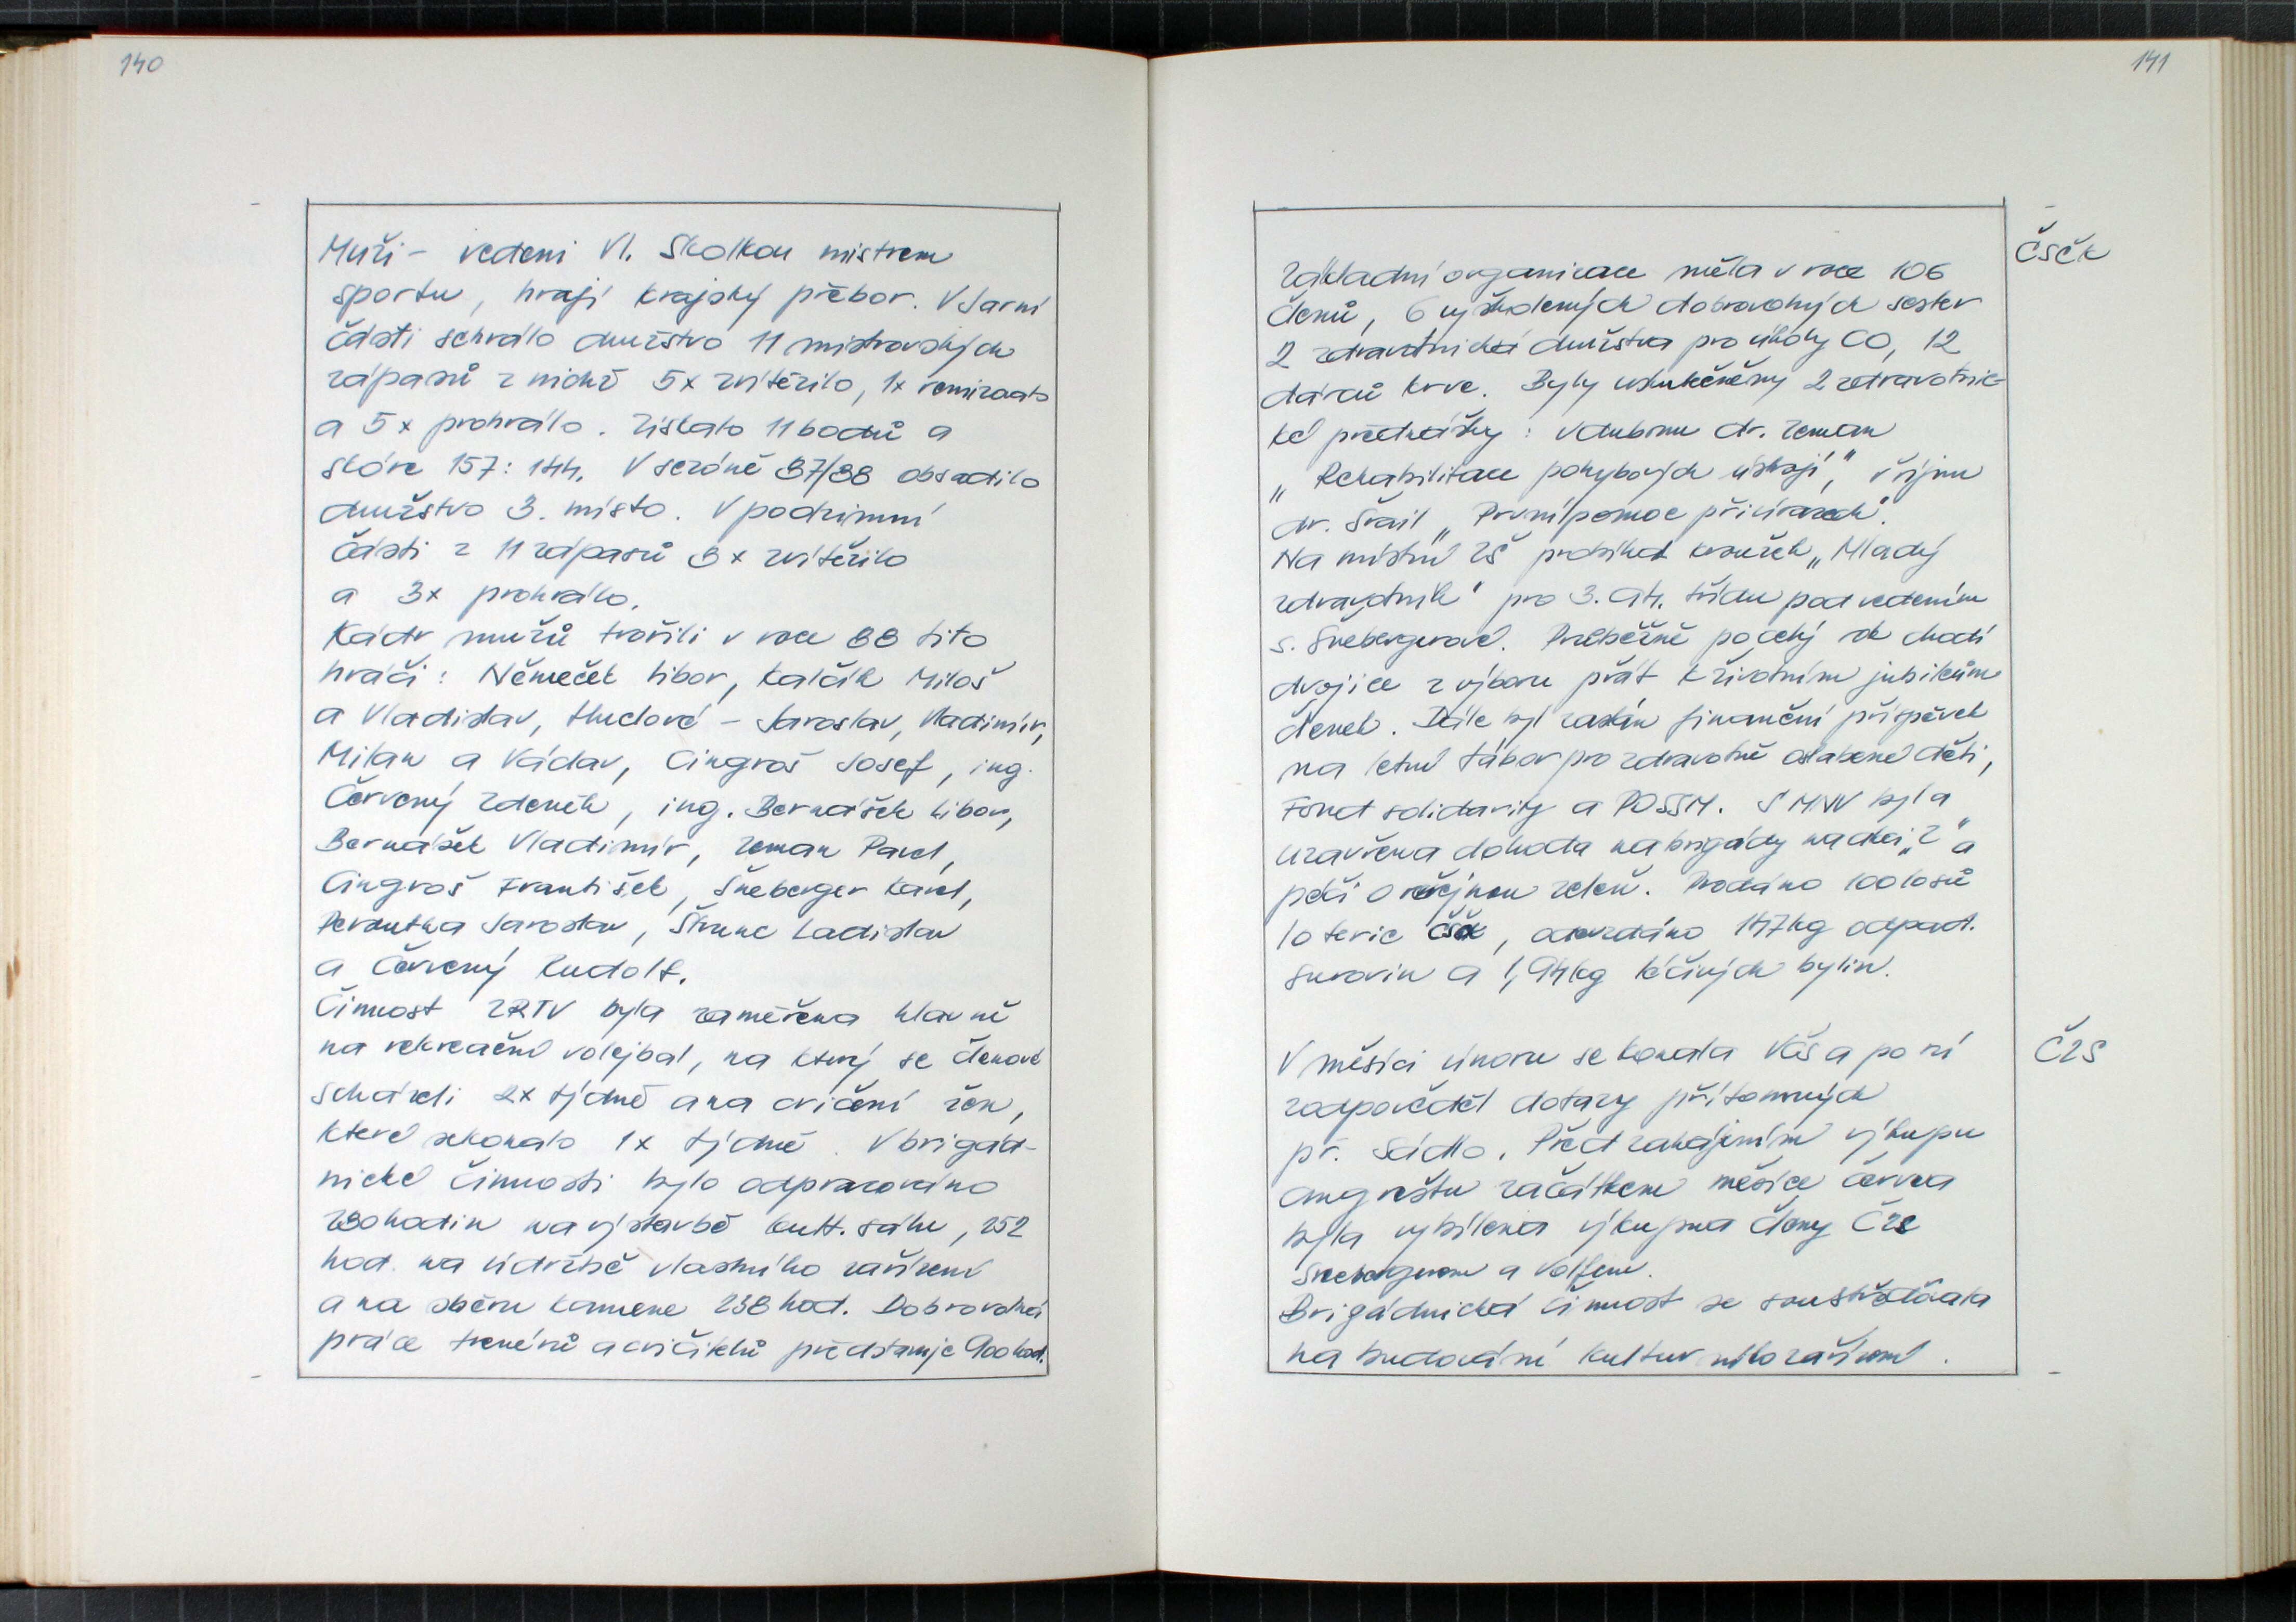 140
Muži - vedeni Vl. Skolkou mistrem
sportu, hrají krajský přebor. V jarní
části sehrálo družstvo 11 mistrovských
zápasů z nichž 5x zvítězilo, 1x remizovalo
a 5x prohrálo. Získalo 11 bodů a
skóre 157:144. V sezóně 87/88 obsadilo
družstvo 3. místo. V podzimní
části z 11 zápasů 8x zvítězilo
a 3x prohrálo.
Kádr mužů tvořili v roce 88 tito
hráči: Němeček Libor, Kalčík Miloš
a Vladislav, Huclové - Jaroslav, Vladimír,
Milan a Václav, Cingroš Josef, ing.
Červený Zdeněk, ing. Bernášek Libor,
Bernášek Vladimír, Zeman Pavel,
Cingroš František, Šneberger Karel,
Peroutka Jaroslav, Štrunc Ladislav
a Červený Rudolf.
Činnost ZRTV byla zaměřena hlavně
na rekreační volejbal, na který se členové
scházeli 2x týdně a na cvičení žen,
které se konalo 1x týdně. V brigád-
nické činnosti bylo odpracováno
780 hodin na výstavbě kult. sálu, 252
hod. na údržbě vlastního zařízení
a na sběru kamene 238 hod. Dobrovolná
práce trenérů a cvičitelů představuje 900 hod.
141
ČSČK
Základní organizace měla v roce 106
členů, 6 vyškolených dobrovolných sester
2 zdravotnická družstva pro úkoly CO, 12
dárců krve. Byly uskutečněny 2 zdravotnic-
ké přednášky: v dubnu dr. Zeman
„Rehabilitace pohybových ústrojí", v říjnu
dr. Šrail „První pomoc při úrazech".
Na místní ZŠ probíhal kroužek „Mladý
zdravotník" pro 3. a 4. třídu pod vedením
s. Šnebergerové. Průběžně po celý rok chodí
dvojice z výboru přát k životním jubileům
členek. Dále byl zaslán finanční příspěvek
na letní tábor pro zdravotně oslabené děti,
Fond solidarity a POSSM. S MNV byla
uzavřena dohoda na brigády na akci „Z" a
péči o veřejnou zeleň. Prodáno 100 losů
loterie ČSČK, odevzdáno 147 kg odpad.
surovin a 1,94 kg léčivých bylin.
ČZS
V měsíci únoru se konala VČS a po ní
zodpověděl dotazy přítomných
př. Seidlo. Před zahájením výkupu
angreštu začátkem měsíce června
byla vybílena výkupna členy ČZS
Šnebergerem a Volfem.
Brigádnická činnost se soustředovala
na budování kulturního zařízení.